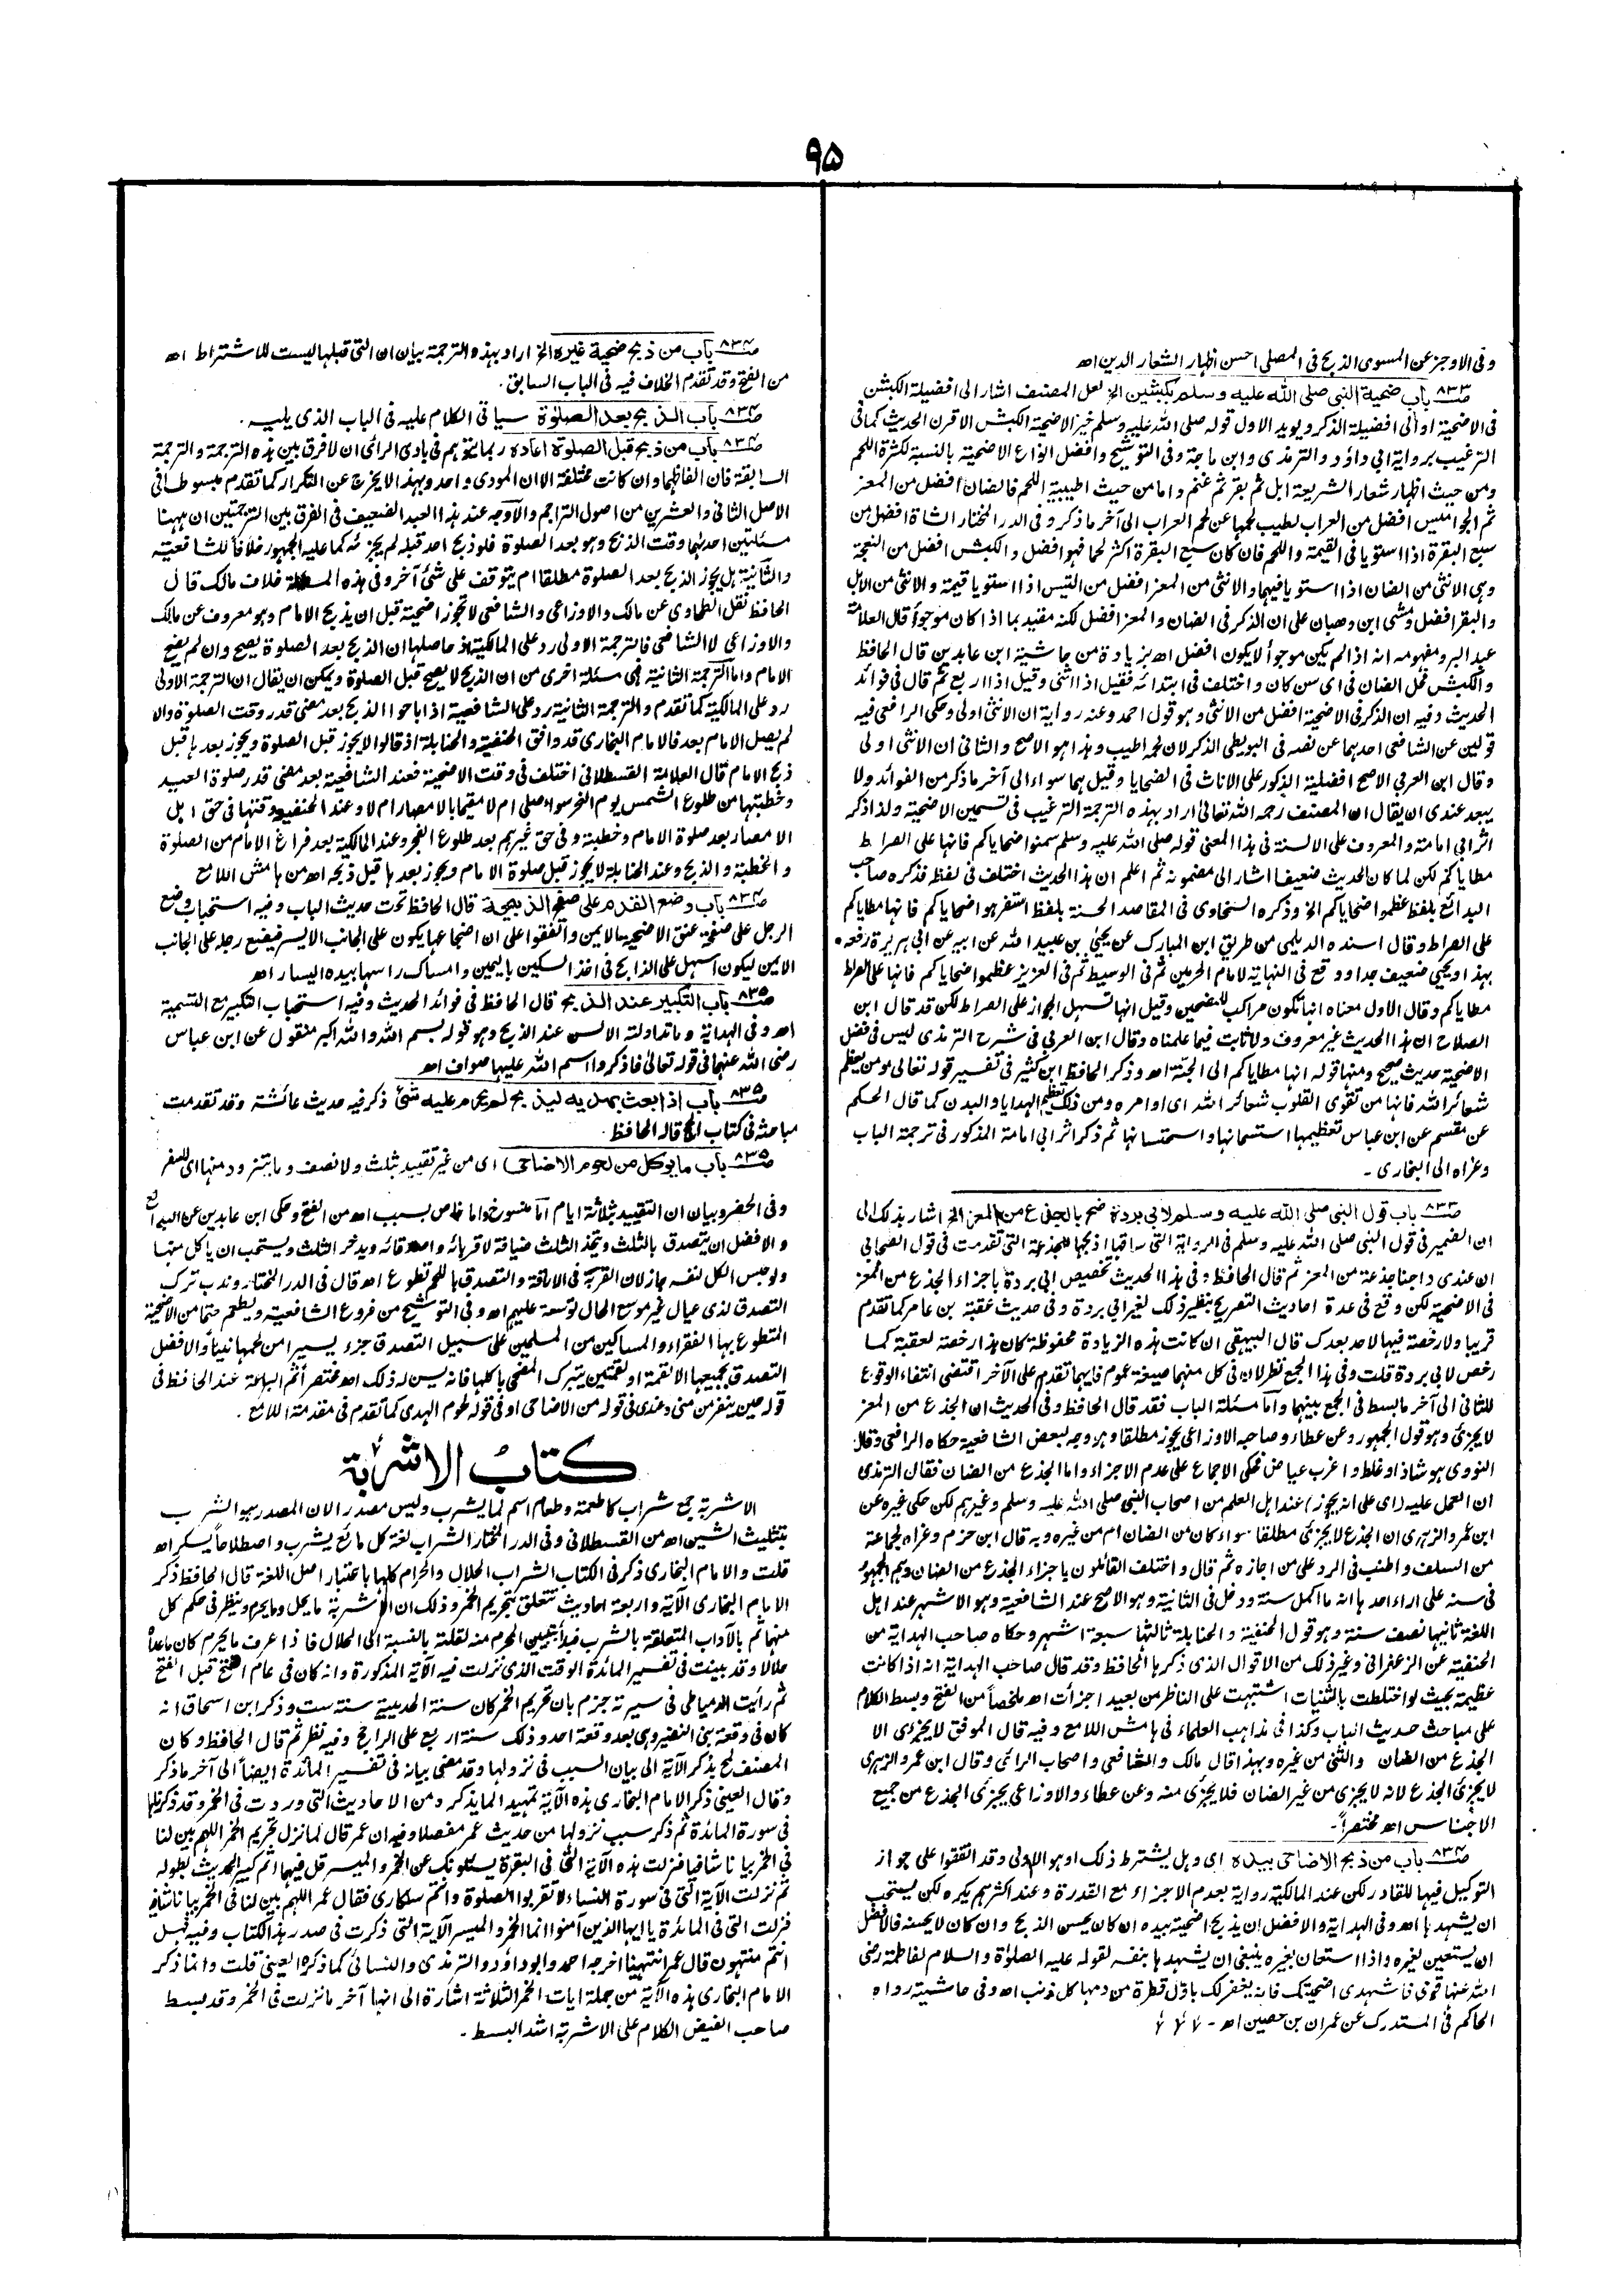 ۹۵
وفی الاوجز عن المسوی الذبح فی المصلی احسن اظهار الشعار الدین اه
ص۸۳۳ باب ضحیة النبی صلی الله علیه وسلم بکبشین الخ لعل المصنف اشار الی افضیلة الکبشن
فی الاضحیة او الی افضیلة الذکر ویوید الاول قوله صلی الله علیه وسلم خیر الاضحیة الکبش الاقرن الحدیث کما فی
الترغیب بروایة ابی داؤد والترمذی وابن ماجة وفی التوشیح وافضل انواع الاضحیة بالنسبة لکثرة اللحم
ومن حیث اظهار شعار الشریعة ابل ثم بقر ثم غنم واما من حیث اطیبیة اللحم فالضان افضل من المعز
ثم الجوامیس افضل من العراب لطیب لحمها عن لحم العراب الی آخر ما ذکر وفی الدر المختار الشاة افضل من
سبع البقرة اذا استویا فی القیمة واللحم فان کان سبع البقرة اکثر لحما فهو افضل والکبش افضل من النعجة
وهی الانثی من الضان اذا استویا فیهما والانثی من المعز افضل من التیس اذا استویا قیمة والانثی من الابل
والبقر افضل ومشی ابن وهبان علی ان الذکر فی الضان والمعز افضل لکنه مقید بما اذا کان موجوأ قال العلامة
عبد البر ومفهومه انه اذا لم یکن موجوأ لا یکون افضل اه بزیادة من حاشیة ابن عابدین قال الحافظ
والکبش فحل الضان فی ای سن کان واختلف فی ابتدائه فقیل اذا اثنی وقیل اذا اربع ثم قال فی فوائد
الحدیث وفیه ان الذکر فی الاضحیة افضل من الانثی وهو قول احمد وعنه روایة ان الانثی اولی وحکی الرافعی فیه
قولین عن الشافعی احدهما عن نصه فی البویطی الذکر لان لحمه اطیب وهذا هو الاصح والثانی ان الانثی اولی
وقال ابن العربی الاصح افضلیة الذکور علی الاناث فی الضحایا وقیل هما سواء الی آخر ما ذکر من الفوائد ولا
یبعد عندی ان یقال ان المصنف رحمه الله تعالی اراد بهذه الترجمة الترغیب فی تسمین الاضحیة ولذا ذکر
اثر ابی امامة والمعروف علی الالسنة فی هذا المعنی قوله صلی الله علیه وسلم سمنوا ضحایاکم فانها علی الصراط
مطایاکم لکن لما کان الحدیث ضعیفا اشار الی مضمونه ثم اعلم ان هذا الحدیث اختلف فی لفظه فذکره صاحب
البدائع بلفظ عظموا ضحایاکم الخ وذکره السخاوی فی المقاصد الحسنة بلفظ استفرهوا ضحایاکم فانها مطایاکم
علی الصراط وقال اسنده الدیلمی من طریق ابن المبارک عن یحیی بن عبید الله عن ابیه عن ابی هریرة رفعه
بهذا ویحیی ضعیف جدا ووقع فی النهایة لامام الحرمین ثم فی الوسیط ثم فی العزیز عظموا ضحایاکم فانها علی الصراط
مطایاکم وقال الاول معناه انها تکون مراکب للمضحین وقیل انها تسهل الجواز علی الصراط لکن قد قال ابن
الصلاح ان هذا الحدیث غیر معروف ولا ثابت فیما علمناه وقال ابن العربی فی شرح الترمذی لیس فی فضل
الاضحیة حدیث صحیح ومنها قوله انها مطایاکم الی الجنة اه وذکر الحافظ ابن کثیر فی تفسیر قوله تعالی ومن یعظم
شعائر الله فانها من تقوی القلوب شعائر الله ای اوامره ومن ذلک تعظیم الهدایا والبدن کما قال الحکم
عن مقسم عن ابن عباس تعظیمها استسمانها واستحسانها ثم ذکر اثر ابی امامة المذکور فی ترجمة الباب
وعزاه الی البخاری ۔
ص۸۳۳ باب قول النبی صلی الله علیه وسلم لابی بردة ضح بالجذع من المعز الخ اشار بذلک الی
ان الضمیر فی قول النبی صلی الله علیه وسلم فی الروایة التی ساقها اذبحها للجذعة التی تقدمت فی قول الصحابی
ان عندی داجنا جذعة من المعز ثم قال الحافظ وفی هذا الحدیث تخصیص ابی بردة باجزاء الجذع من المعز
فی الاضحیة لکن وقع فی عدة احادیث التصریح بنظیر ذلک لغیر ابی بردة وفی حدیث عقبة بن عامر کما تقدم
قریبا ولا رخصة فیها لاحد بعدک قال البیهقی ان کانت هذه الزیادة محفوظة کان هذا رخصة لعقبة کما
رخص لابی بردة قلت وفی هذا الجمع نظر لان فی کل منهما صیغة عموم فایهما تقدم علی الآخر اقتضی انتفاء الوقوع
للثانی الی آخر ما بسط فی الجمع بینهما وأما مسئلة الباب فقد قال الحافظ وفی الحدیث ان الجذع من المعز
لا یجزئ وهو قول الجمهور وعن عطاء وصاحبه الاوزاعی یجوز مطلقا وهو وجه لبعض الشافعیة حکاه الرافعی وقال
النووی هو شاذ او غلط واغرب عیاض فحکی الاجماع علی عدم الاجزاء واما الجذع من الضان فقال الترمذی
ان العمل علیه (ای علی انه یجوز) عند اهل العلم من اصحاب النبی صلی الله علیه وسلم وغیرهم لکن حکی غیره عن
ابن عمر والزهری ان الجذع لا یجزئ مطلقا سواء کان من الضان ام من غیره وبه قال ابن حزم وعزاه لجماعة
من السلف واطنب فی الرد علی من اجازه ثم قال واختلف القائلون باجزاء الجذع من الضان وهم الجمهور
فی سنه علی اراء احدها انه ما اکمل سنة ودخل فی الثانیة وهو الاصح عند الشافعیة وهو الاشهر عند اهل
اللغة ثانیها نصف سنة وهو قول الحنفیة والحنابلة ثالثها سبعة اشهر وحکاه صاحب الهدایة من
الحنفیة عن الزعفرانی وغیر ذلک من الاقوال الذی ذکرها الحافظ وقد قال صاحب الهدایة انه اذا کانت
عظیمة بحیث لو اختلطت بالثنیات اشتبهت علی الناظر من بعید اجزأت اه ملخصاً من الفتح وبسط الکلام
علی مباحث حدیث الباب وکذا فی مذاهب العلماء فی هامش اللامع وفیه قال الموفق لا یجزئ الا
الجذع من الضان والثنی من غیره وبهذا قال مالک والشافعی واصحاب الرائی وقال ابن عمر والزهری
لا یجزئ الجذع لانه لا یجزی من غیر الضان فلا یجزی منه وعن عطاء والاوزاعی یجزئ الجذع من جمیع
الاجناس اه مختصراً ۔
ص۸۳۴ باب من ذبح الاضاحی بیده ای وهل یشترط ذلک او هو الاولی وقد اتفقوا علی جواز
التوکیل فیها للقادر لکن عند المالکیة روایة بعدم الاجزاء مع القدرة وعند اکثرهم یکره لکن یستحب
ان یشهدها اه وفی الهدایة والافضل ان یذبح اضحیة بیده ان کان یحسن الذبح وان کان لا یحسنه فالافضل
ان یستعین بغیره واذا استعان بغیره ینبغی ان یشهدها بنفسه لقوله علیه الصلوة والسلام لفاطمة رضی
الله عنها قومی فاشهدی اضحیتک فانه یغفر لک باول قطرة من دمها کل ذنب اه وفی حاشیته رواه
الحاکم فی المستدرک عن عمران بن حصین اه ۔
ص۸۳۴ باب من ذبح ضحیة غیره الخ اراد بهذه الترجمة بیان ان التی قبلها لیست للاشتراط اه
من الفتح وقد تقدم الخلاف فیه فی الباب السابق ۔
ص۸۳۴ باب الذبح بعد الصلوة سیاتی الکلام علیه فی الباب الذی یلیه ۔
ص۸۳۴ باب من ذبح قبل الصلوة اعاده ربما یتوهم فی بادی الرائی ان لا فرق بین هذه الترجمة والترجمة
السابقة فان الفاظهما وان کانت مختلفة الا ان المودی واحد وبهذا لا یخرج عن التکرار کما تقدم مبسوطا فی
الاصل الثانی والعشرین من اصول التراجم والآوجه عند هذا العبد الضعیف فی الفرق بین الترجمتین ان ههنا
مسئلتین احدهما وقت الذبح وهو بعد الصلوة فلو ذبح احد قبله لم یجزئه کما علیه الجمهور خلافا للشافعیة
والثانیة هل یجوز الذبح بعد الصلوة مطلقا ام یتوقف علی شئ آخر وفی هذه المسئلة خلاف مالک قال
الحافظ نقل الطحاوی عن مالک والاوزاعی والشافعی لا تجوز اضحیة قبل ان یذبح الامام وهو معروف عن مالک
والاوزاعی لا الشافعی فالترجمة الاولی رد علی المالکیة اذ حاصلها ان الذبح بعد الصلوة یصح وان لم یضح
الامام واما الترجمة الثانیة فهی مسئلة اخری من ان الذبح لا یصح قبل الصلوة ویمکن ان یقال ان الترجمة الاولی
رد علی المالکیة کما تقدم والترجمة الثانیة رد علی الشافعیة اذا باحوا الذبح بعد مضی قدر وقت الصلوة والا
لم یصل الامام بعد فالامام البخاری قد وافق الحنفیة والحنابلة اذ قالوا لا یجوز قبل الصلوة ویجوز بعدها قبل
ذبح الامام قال العلامة القسطلانی اختلف فی وقت الاضحیة فعند الشافعیة بعد مضی قدر صلوة العید
وخطبتها من طلوع الشمس یوم النحر سواء صلی ام لا مقیما بالامصار ام لا وعند الحنفیة وقتها فی حق اهل
الامصار بعد صلوة الامام وخطبته وفی حق غیرهم بعد طلوع الفجر وعند المالکیة بعد فراغ الامام من الصلوة
والخطبة والذبح وعند الحنابلة لا یجوز قبل صلوة الامام ویجوز بعدها قبل ذبحه اه من هامش اللامع
ص۸۳۴ باب وضع القدم علی صفح الذبیحة قال الحافظ تحت حدیث الباب وفیه استحباب وضع
الرجل علی صفحة عنق الاضحیة الایمن واتفقوا علی ان اضجاعها یکون علی الجانب الایسر فیضع رجله علی الجانب
الایمن لیکون اسهل علی الذابح فی اخذ السکین بالیمین وامساک راسها بیده الیسار اه
ص۸۳۵ باب التکبیر عند الذبح قال الحافظ فی فوائد الحدیث وفیه استحباب التکبیر مع التسمیة
اه وفی الهدایة وما تداولته الالسن عند الذبح وهو قوله بسم الله والله اکبر منقول عن ابن عباس
رضی الله عنهما فی قوله تعالی فاذکروا اسم الله علیها صواف اه
ص۸۳۵ باب اذا بعث بهدیه لیذبح لم یحرم علیه شئ ذکر فیه حدیث عائشة وقد تقدمت
مباحثه فی کتاب الحج قاله الحافظ ۔
ص۸۳۵ باب ما یوکل من لحوم الاضاحی ای من غیر تقیید بثلث ولا نصف وما یتزود منها ای للسفر
وفی الحضر وبیان ان التقیید بثلاثة ایام اما منسوخ واما خاص بسبب اه من الفتح وحکی ابن عابدین عن البدائع
والافضل ان یتصدق بالثلث ویتخذ الثلث ضیافة لاقربائه واصدقائه ویدخر الثلث ویستحب ان یاکل منها
ولو حبس الکل لنفسه جاز لان القربة فی الاراقة والتصدق باللحم تطوع اه قال فی الدر المختار وندب ترک
التصدق لذی عیال غیر موسع الحال توسعة علیهم اه وفی التوشیح من فروع الشافعیة ویطعم حتما من الاضحیة
المتطوع بها الفقراء والمساکین من المسلمین علی سبیل التصدق جزء یسیرا من لحمها نیئاً والافضل
التصدق بجمیعها الا لقمة او لقمتین یتبرک المضحی باکلها فانه یسن له ذلک اه مختصر أثم البراعة عند الحافظ فی
قوله حین ینفر من منی وعندی فی قوله من الاضاحی او فی قوله لحوم الهدی کما تقدم فی مقدمة اللامع ۔
کتاب الاشربة
الاشربة جمع شراب کاطعمة وطعام اسم لما یشرب ولیس مصدرا لان المصدر هو الشرب
بتثلیث الشین اه من القسطلانی وفی الدر المختار الشراب لغة کل مائع یشرب واصطلاحاً ما یسکر اه
قلت والامام البخاری ذکر فی الکتاب الشراب الحلال والحرام کلها باعتبار اصل اللغة قال الحافظ ذکر
الامام البخاری الآیة واربعة احادیث تتعلق بتحریم الخمر وذلک ان الاشربة ما یحل وما یحرم وینظر فی حکم کل
منهما ثم بالآداب المتعلقة بالشرب فبدأ بتبیین المحرم منه لقلته بالنسبة الی الحلال فاذا عرف ما یحرم کان ما عداه
حلالا وقد بینت فی تفسیر المائدة الوقت الذی نزلت فیه الآیة المذکورة وانه کان فی عام الفتح قبل الفتح
ثم رأیت الدمیاطی فی سیرته جزم بان تحریم الخمر کان سنة الحدیبیة سنة ست وذکر ابن اسحاق انه
کان فی وقعة بنی النضیر وهی بعد وقعة احد وذلک سنة اربع علی الراجح وفیه نظر ثم قال الحافظ وکان
المصنف لمح بذکر الآیة الی بیان السبب فی نزولها وقد مضی بیانه فی تفسیر المائدة ایضاً الی آخر ما ذکر
وقال العینی ذکر الامام البخاری هذه الآیة تمهیدا لما یذکره من الاحادیث التی وردت فی الخمر وقد ذکرناها
فی سورة المائدة ثم ذکر سبب نزولها من حدیث عمر مفصلا وفیه ان عمر قال لما نزل تحریم الخمر اللهم بین لنا
فی الخمر بیانا شافیا فنزلت هذه الآیة التی فی البقرة یسئلونک عن الخمر والمیسر قل فیهما اثم کبیر الحدیث بطوله
ثم نزلت الآیة التی فی سورة النساء لا تقربوا الصلوة وانتم سکاری فقال عمر اللهم بین لنا فی الخمر بیانا شافیا
فنزلت التی فی المائدة یا ایها الذین آمنوا انما الخمر والمیسر الآیة التی ذکرت فی صدر هذا الکتاب وفیه فهل
انتم منتهون قال عمر انتهینا اخرجه احمد وابوداؤد والترمذی والنسائی کما ذکره العینی قلت وانما ذکر
الامام البخاری هذه الآیة من جملة ایات الخمر الثلاثة اشارة الی انها آخر ما نزلت فی الخمر وقد بسط
صاحب الفیض الکلام علی الاشربة اشد البسط ۔